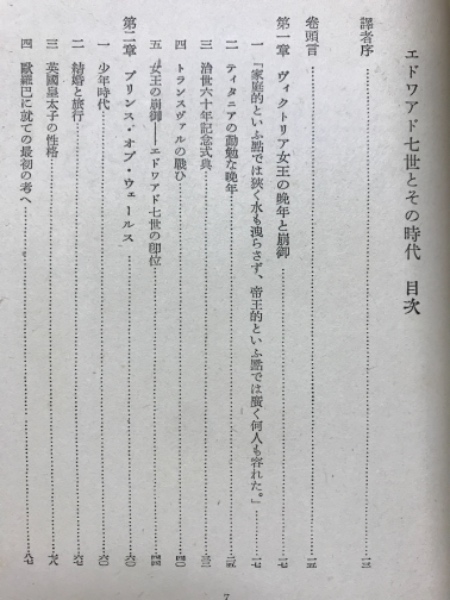 エドワアド七世とその時代 目次
譯者序……一三
卷頭言……一五
第一章 ヴィクトリア女王の晩年と崩御……一七
一 「家庭的といふ點では狹く水も洩らさず、帝王的といふ點では廣く何人も容れた。」……一七
二 ティタニアの勤勉な晩年……二五
三 治世六十年記念式典……三三
四 トランスヴァルの戰ひ……四〇
五 女王の崩御――エドワアド七世の卽位……四四
第二章 プリンス・オブ・ウェールス……六〇
一 少年時代……六〇
二 結婚と旅行……六七
三 英國皇太子の性格……六八
四 歐羅巴に就ての最初の考へ……八七
7